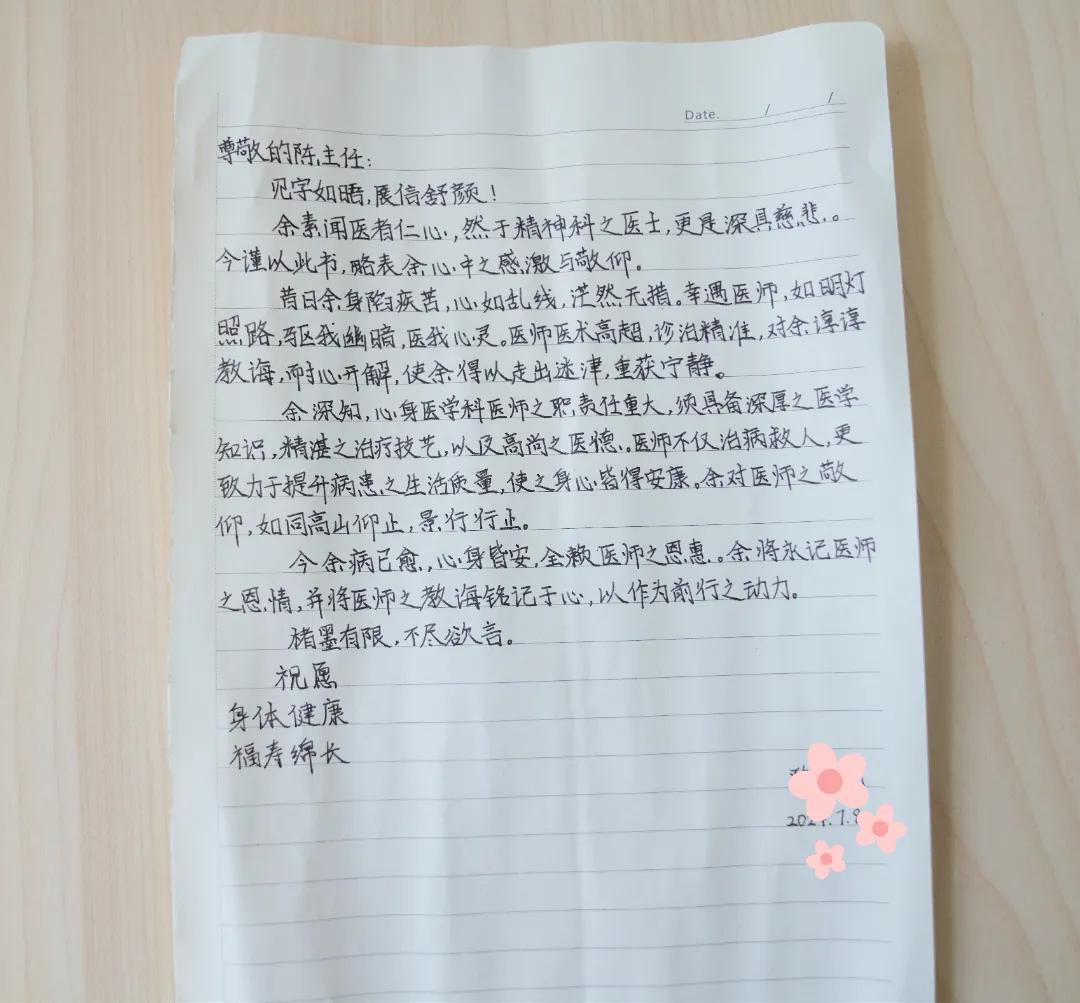 Date. / /
尊敬的陈主任:
见字如晤,展信舒颜!
余素闻医者仁心,然于精神科之医士,更是深具慈悲。
今谨以此书,略表余心中之感激与敬仰。
昔日余身陷疾苦,心如乱线,茫然无措。幸遇医师,如明灯
照路,驱我幽暗,医我心灵。医师医术高超,诊治精准,对余谆谆
教诲,耐心开解,使余得以走出迷津,重获宁静。
余深知,心身医学科医师之职责任重大,须具备深厚之医学
知识,精湛之治疗技艺,以及高尚之医德。医师不仅治病救人,更
致力于提升病患之生活质量,使之身心皆得安康。余对医师之敬
仰,如同高山仰止,景行行止。
今余病已愈,心身皆安,全赖医师之恩惠。余将永记医师
之恩情,并将医师之教诲铭记于心,以作为前行之动力。
楮墨有限,不尽欲言。
祝愿
身体健康
福寿绵长